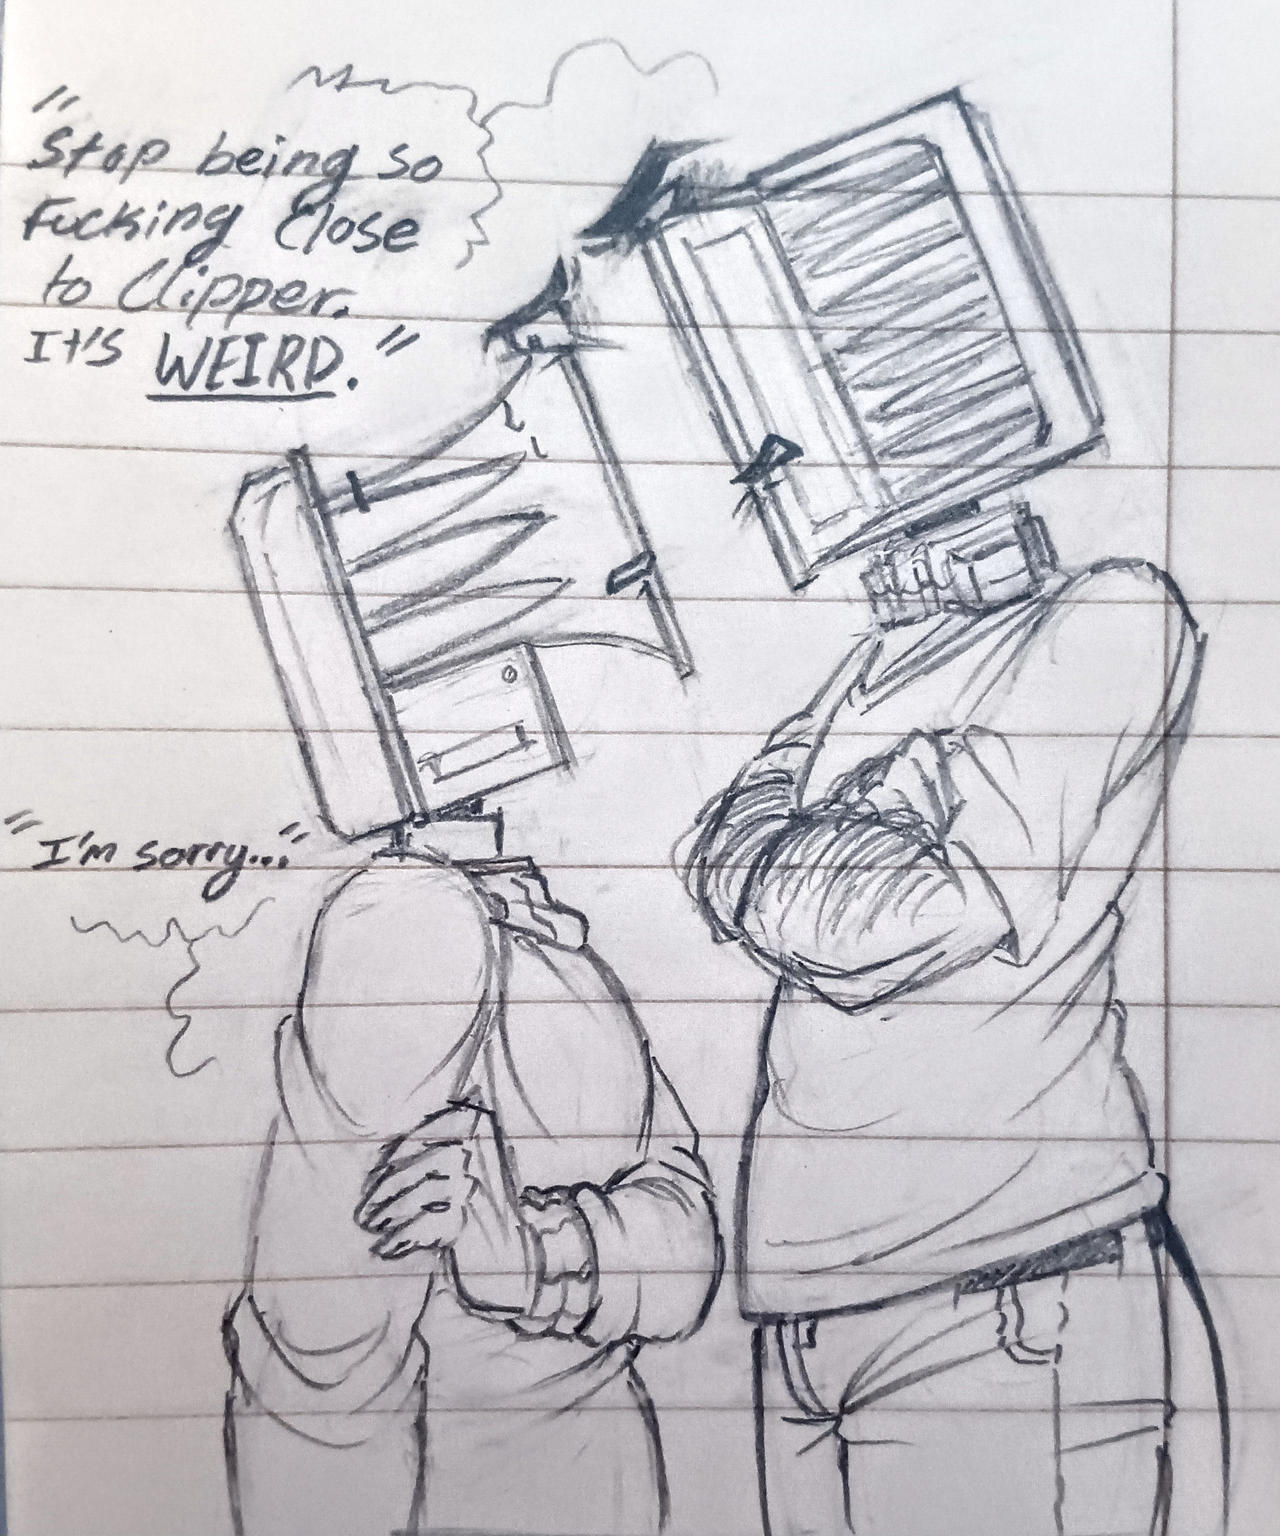 "Stop being so
Fucking Close
to Clipper.
It's WEIRD."
"I'm sorry..."